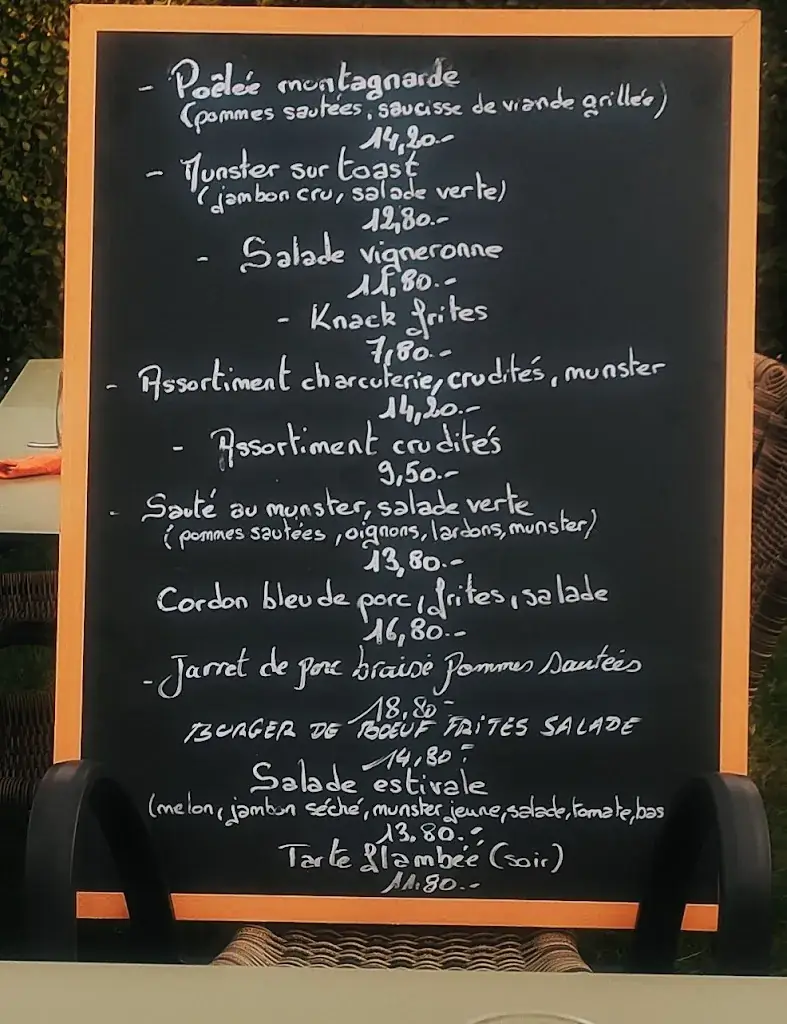 - Poêlée montagnarde
(pommes sautées, saucisse de viande grillée)
14,20.-
- Munster sur toast
(jambon cru, salade verte)
12,80.-
- Salade vigneronne
11,80.-
- Knack frites
7,80.-
- Assortiment charcuterie, crudités, munster
14,20.-
- Assortiment crudités
9,50.-
- Sauté au munster, salade verte
(pommes sautées, oignons, lardons, munster)
13,80.-
Cordon bleu de porc, frites, salade
16,80.-
- Jarret de porc braisé Pommes Sautées
18,80-
BURGER DE BOEUF FRITES SALADE
14,80-
Salade estivale
(melon, jambon séché, munster jeune, salade, tomate, bas
13.80.-
Tarte flambée (soir)
11.80.-